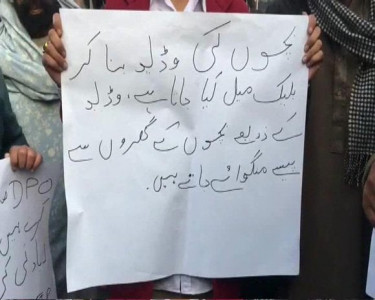 بچوں کی وڈیو بنا کر
بلیک میل کیا جاتا ہے، وڈیو
کے ذریعے بچوں کے گھروں سے
پیسے منگوائے جاتے ہیں.
DPO